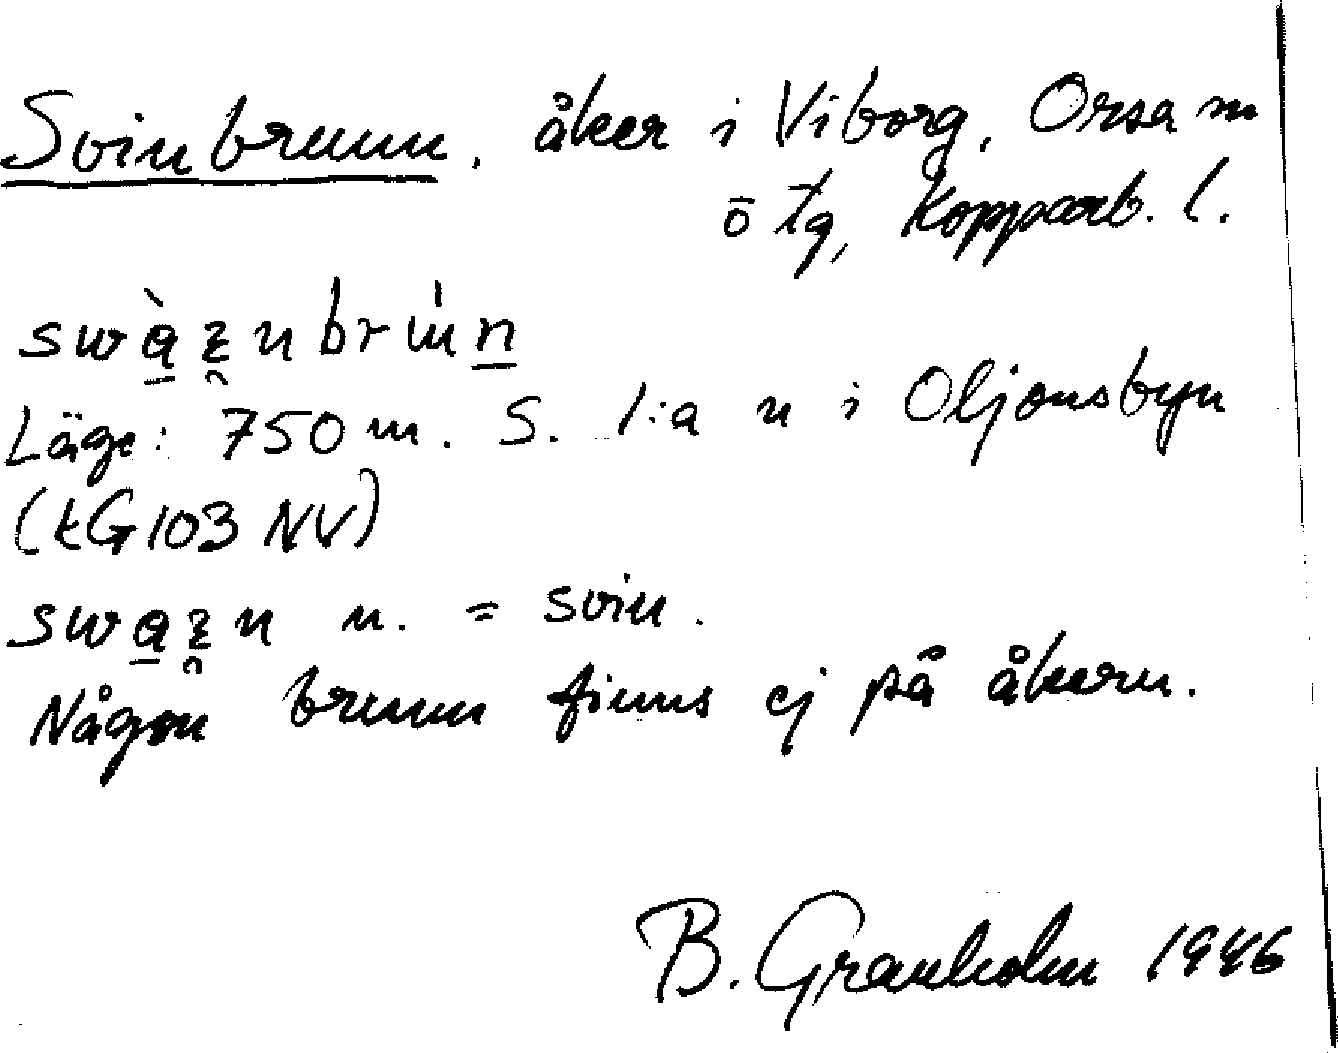 Svinbrunn, åker i Viborg, Orsa sn
ö tg, Kopparb. l.
Läge: 750 m. S. l:a n i Oljonsbyn
(tG 103 NV)
n. = svin.
Någon brunn finns ej på åkern.
B. Granholm 1946